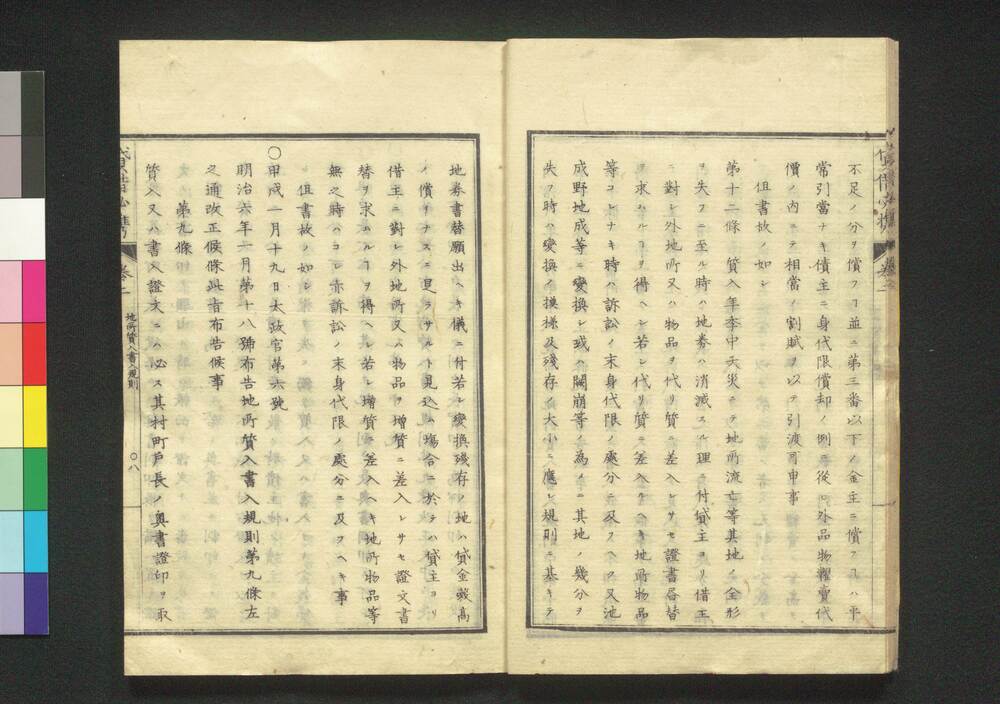 不足ノ分ヲ償フヿ並ニ第三番以下ノ金主ニ償フヿハ平
常引當ナキ債主ニ身代限償却ノ例ニ從ヒ外品物糶賣代
價ノ内ニテ相當ノ割賦ヲ以テ引渡可申事
但書故ノ如シ
第十二條 質入年季中天災ニテ地所流亡等其地ノ全形
ヲ失フニ至ル時ハ地券ハ消滅スル理ニ付貸主ヨリ借主
ニ對シ外地所又ハ物品ヲ代リ質ニ差入レシセ證書居替
ヲ求ハルヿヲ得ヘシ若シ代リ質ニ差入ルヘキ地所物品
等コレナキ時ハ訴訟ノ末身代限ノ處分ニ及フヘク又池
成野地成等ニ變換シ或ハ闕崩等ノ為メニ其地ノ幾分ヲ
失フ時ハ變換ノ摸様及残存ノ大小ニ應シ規則ニ基キテ
地券書替願出ヘキ儀ニ付若シ變換残存ノ地ハ貸金藏高
ノ償ヲナスニ足ラサルト見込ム塲合ニ於テハ貸主ヨリ
借主ニ對シ外地所又ハ物品ヲ増質ニ差入レサセ證文書
替ヲ求ハルヿヲ得ヘシ若シ増質ニ差入ヘキ地所物品等
無之時ハコレ亦訴訟ノ末身代限ノ處分ニ及フヘキ事
但書故ノ如シ
〇甲戌一月十九日太政官第六號
明治六年一月第十八號布告地所質入書入規則第九條左
之通改正候條此旨布告候事
第九條
質入又ハ書入證文ニハ必ス其村町戸長ノ奥書證印ヲ取
貸借必携
卷二
地所質入書入規則
〇八